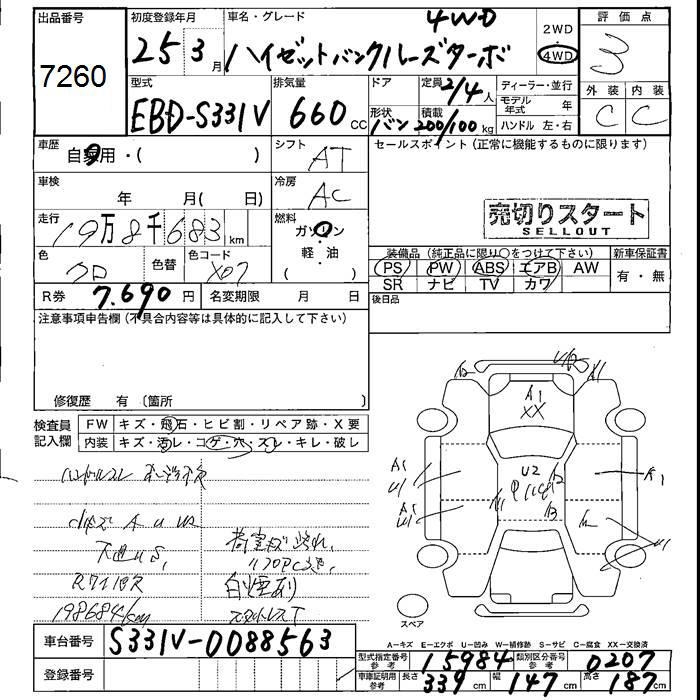 出品番号
7260
初度登録年月
25 3 月
車名・グレード
4WD
ハイゼットバンクルーズターボ
2WD・4WD
評価点
3
型式
EBD-S331V
排気量
660 CC
ドア
定員 2/4 人
形状 バン
積載 200/100 kg
ディーラー・並行
モデル年式 年
ハンドル 左・右
外装 内装
C C
車歴
自家用・( )
シフト
AT
セールスポイント (正常に機能するものに限ります)
車検
年 月( 日)
冷房
AC
売切りスタート
SELLOUT
走行
19万8千683 km
燃料
ガソリン
・
軽・油
( )
色
クロ
色替
色コード
X07
装備品 (純正品に限り○をつけて下さい)
PS PW ABS エアB AW
SR ナビ TV カワ
新車保証書
有・無
R券 7.690 円
名変期限 月 日
後日品
注意事項申告欄(不具合内容等は具体的に記入して下さい)
修復歴 有 〔箇所 〕
検査員記入欄
FW キズ・飛石・ヒビ割・リペア跡・X要
内装 キズ・汚レ・コゲ・穴・スレ・キレ・破レ
白煙有り
A1
XX
U2
スペア
A-キズ E-エクボ U-凹み W-補修跡 S-サビ C-腐食 XX-交換済
車台番号 S331V-0088563
登録番号
型式指定番号 参考 15984
類別区分番号 参考 0207
車庫証明用 参考 長さ 339 cm 幅 147 cm 高さ 187 cm